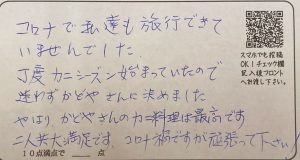 コロナで私達も旅行できて
いませんでした
丁度カニシーズン始まっていたので
迷わずかどやさんに決めました
やはりかどやさんのカニ料理は最高です
二人共大満足です。コロナ禍ですが頑張って下さい
10点満点で 点
スマホでも投稿
OK!チェック欄
記入後フロント
へお渡し下さい。